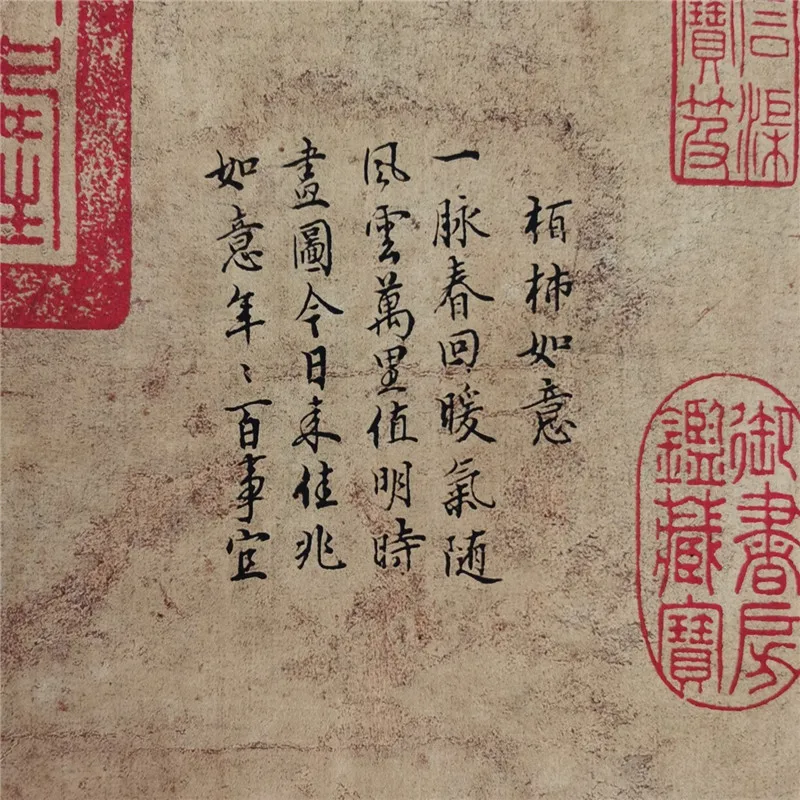 石渠
寶笈
柏柿如意
一脉春回暖氣随
風雲萬里值明時
畫圖今日来佳兆
如意年〻百事宜
御書房
鑑藏寶